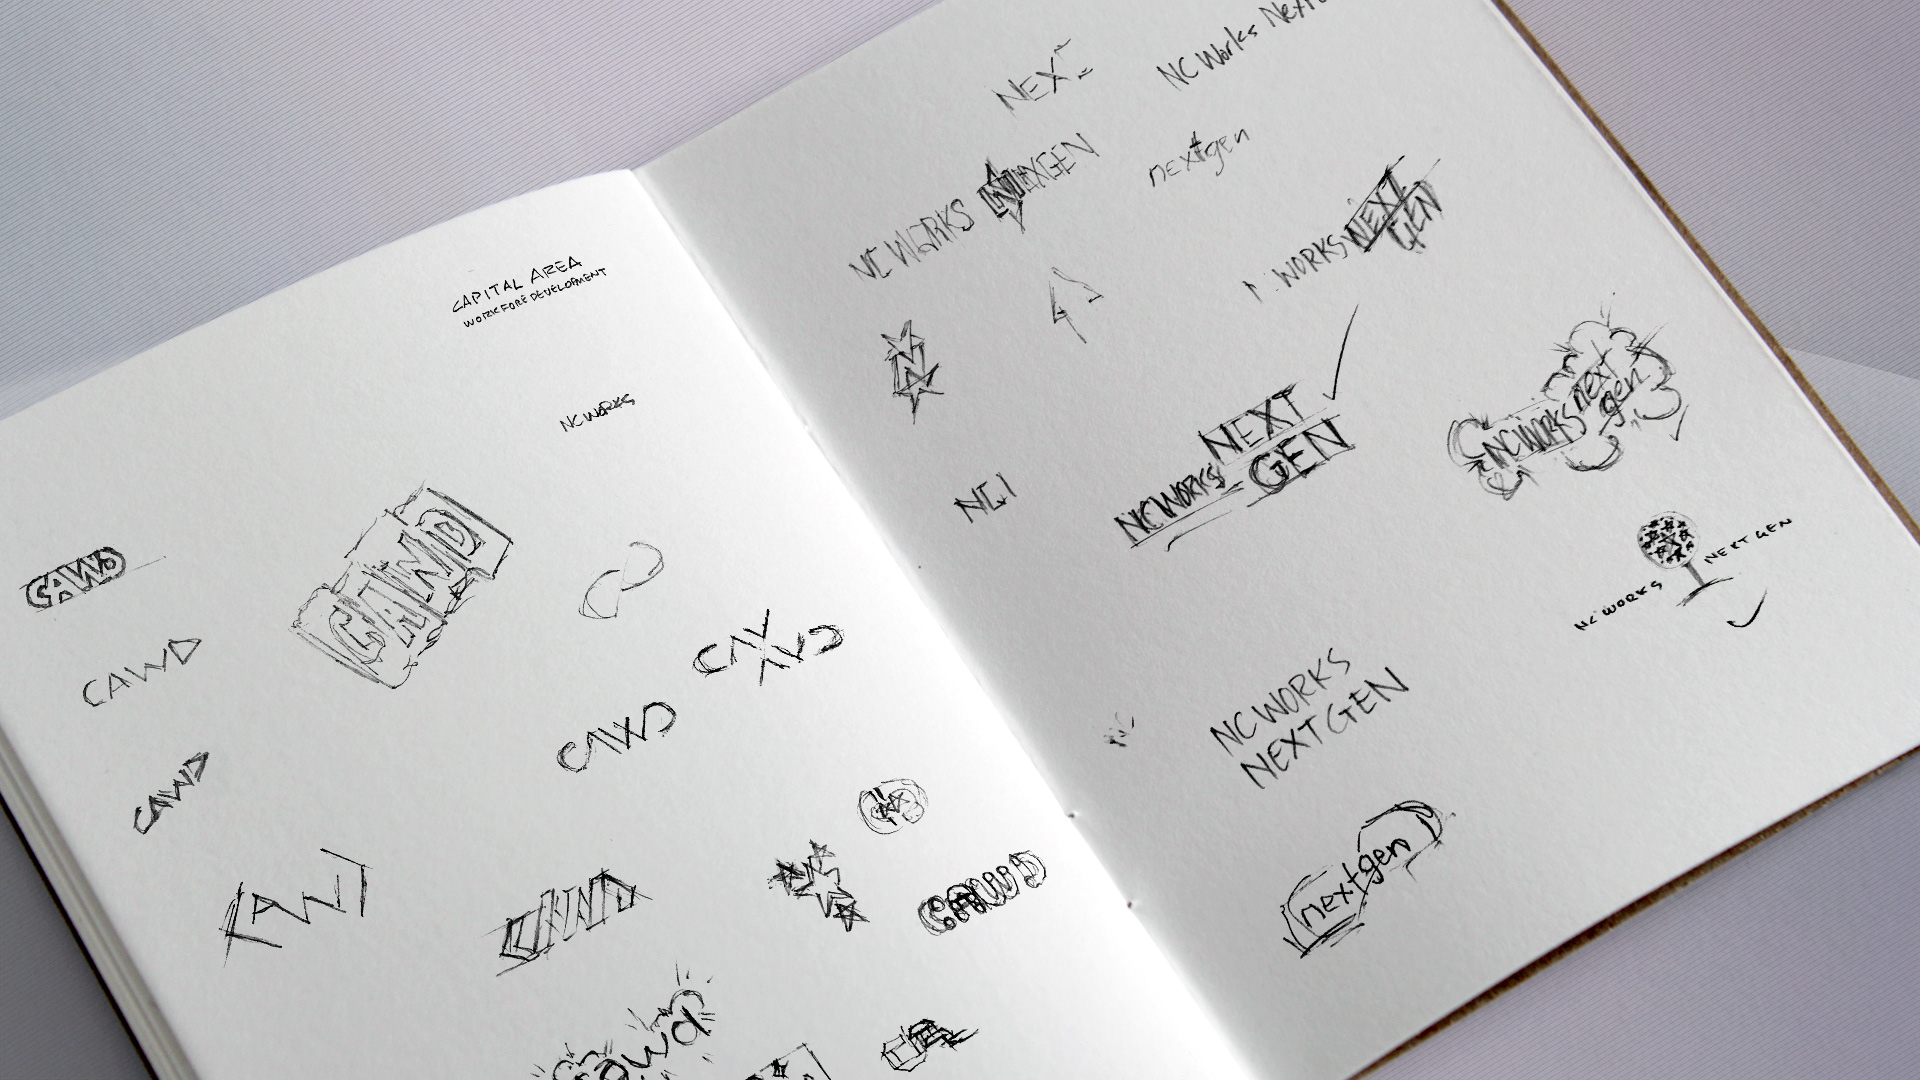 CAPITAL AREA
WORKFORE DEVELOPMENT
NCWORKS
CAWD
CAWD
CAWD
CAWD
CAWD
CAWD
CAWD
CAWD
cawd
NEXT
NC Works
NC WORKS NEXGEN
nextgen
WORKS NEXT
GEN
NCWORKS NEXT
GEN
NCWORKS next
gen
NC WORKS NEXT GEN
NCWORKS
NEXTGEN
nextgen